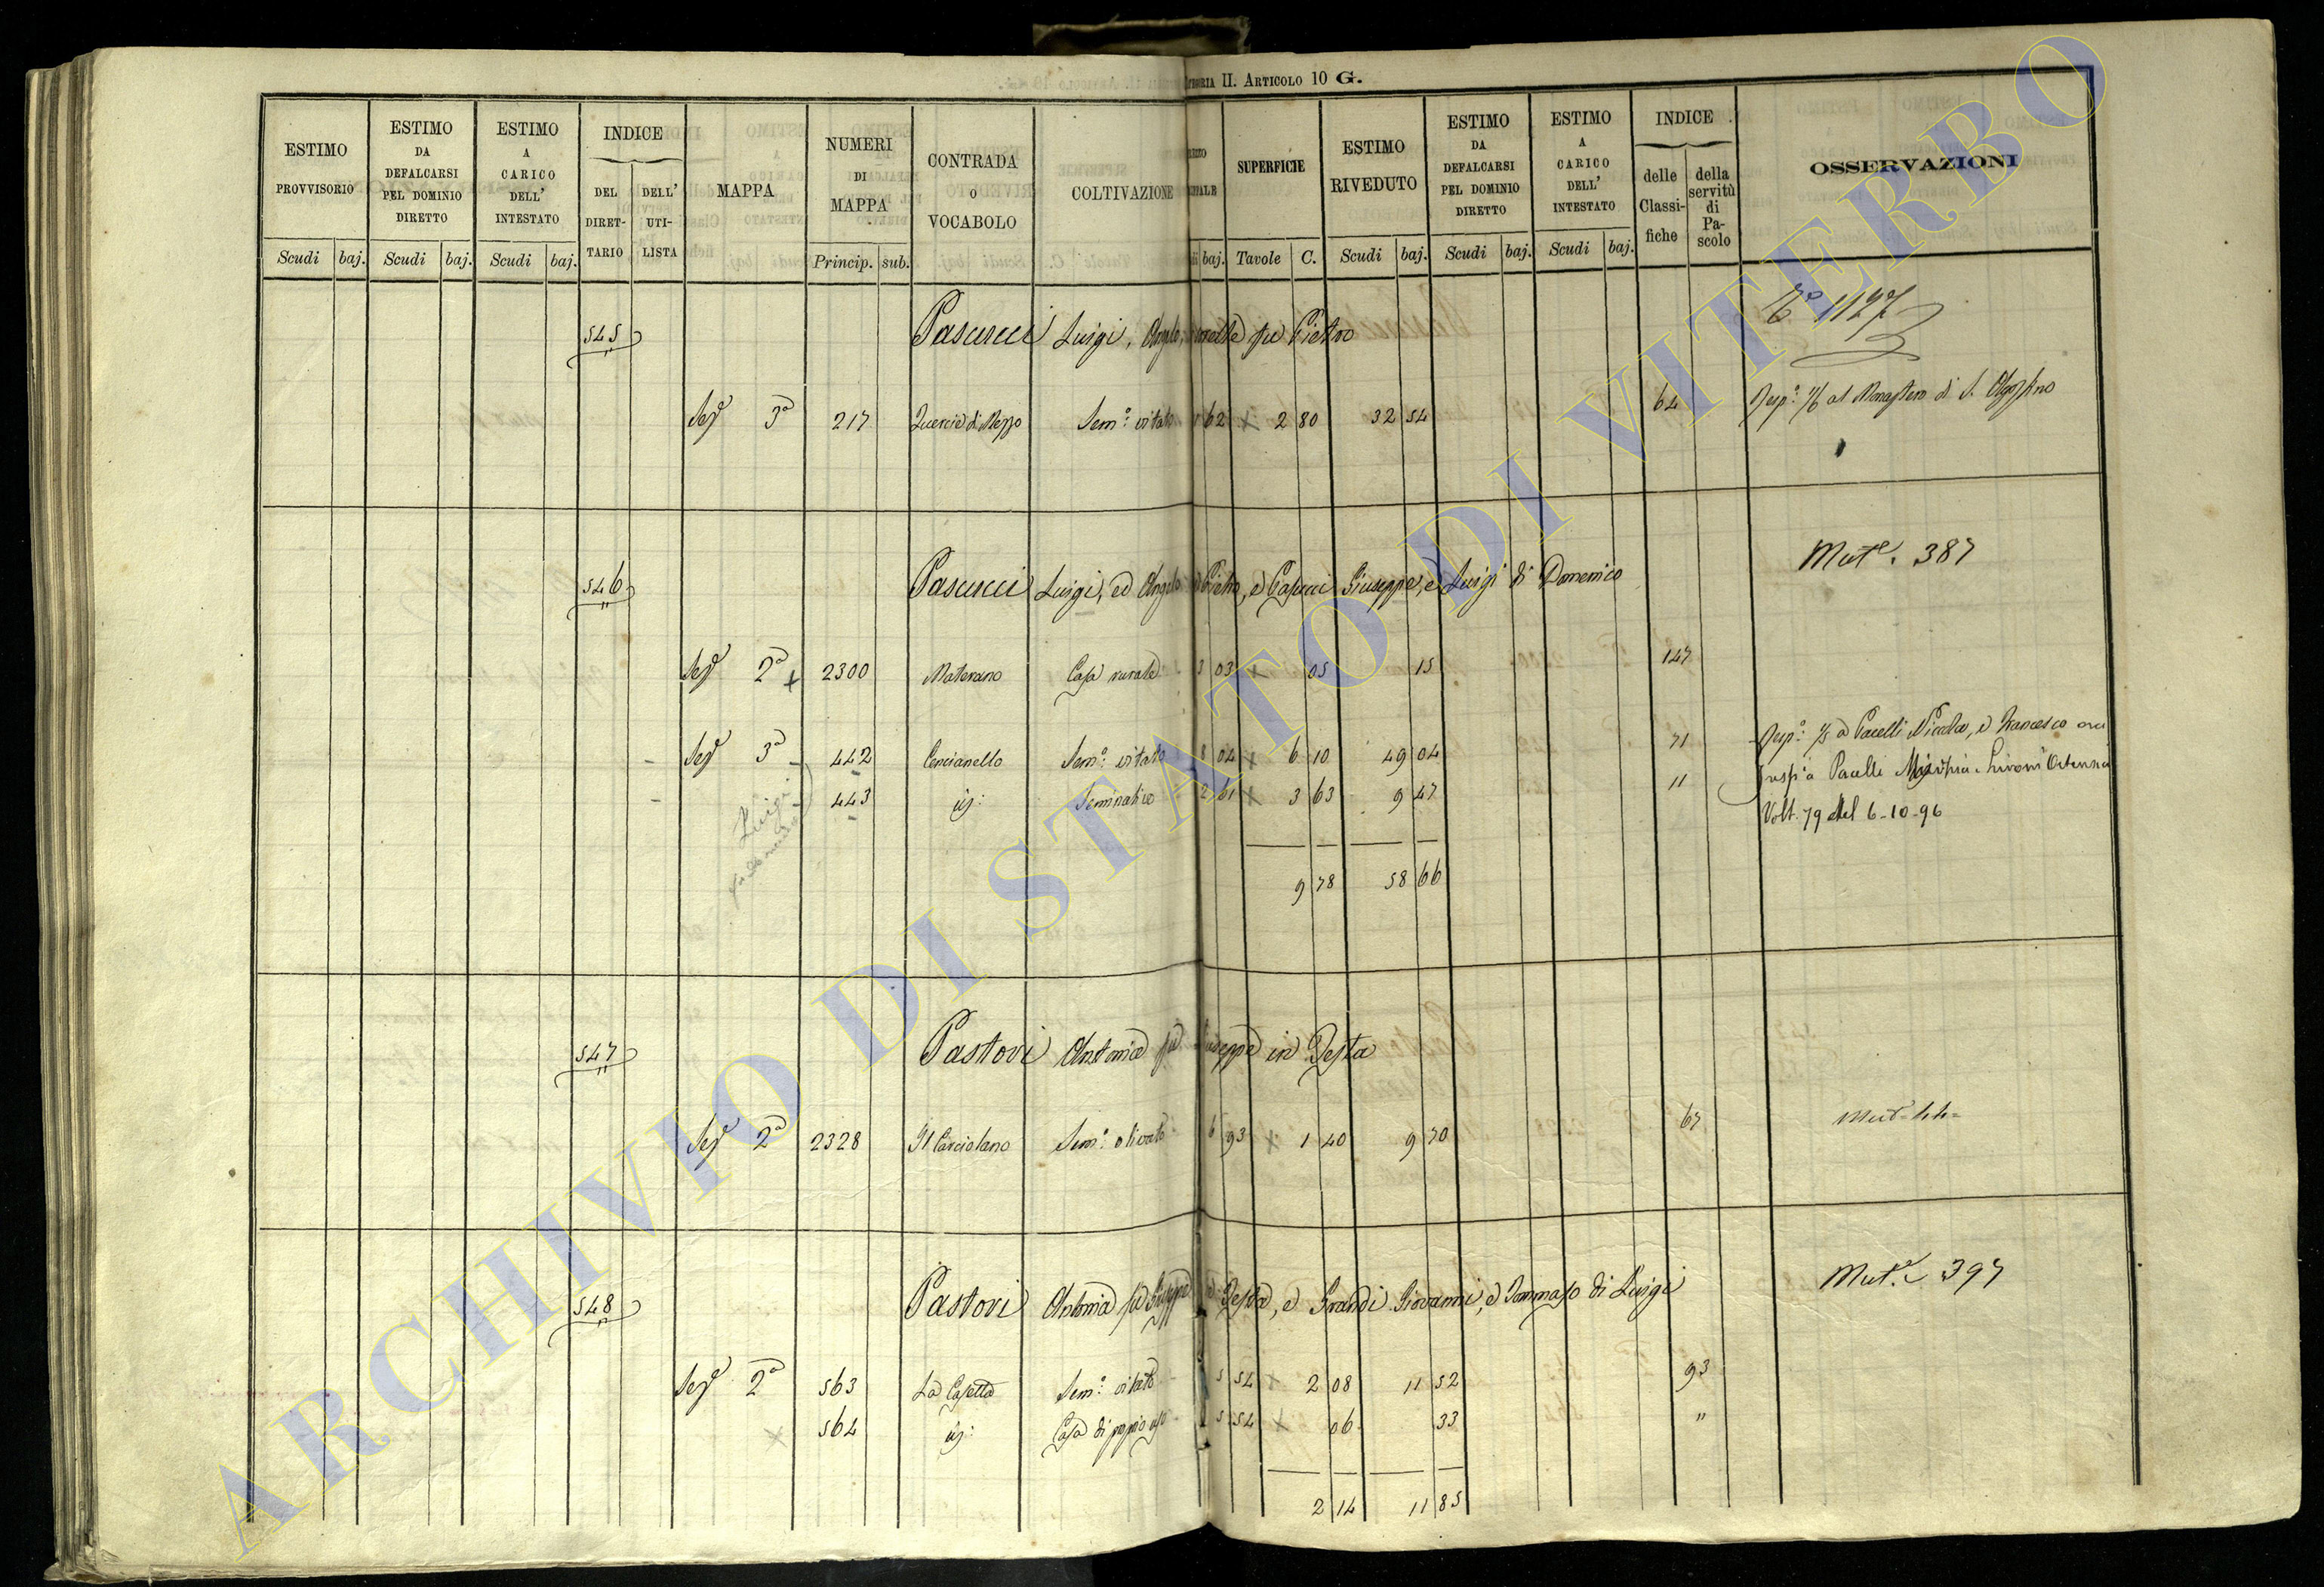 II. Articolo 10 G.
ESTIMO PROVVISORIO
ESTIMO DA DEFALCARSI PEL DOMINIO DIRETTO
ESTIMO A CARICO DELL' INTESTATO
INDICE
DEL DIRET-TARIO
DELL' UTI-LISTA
MAPPA
NUMERI DI MAPPA
CONTRADA O VOCABOLO
COLTIVAZIONE
SUPERFICIE
ESTIMO RIVEDUTO
ESTIMO DA DEFALCARSI PEL DOMINIO DIRETTO
ESTIMO A CARICO DELL' INTESTATO
INDICE
delle Classi-fiche
della servitù di Pa-scolo
OSSERVAZIONI
Scudi baj. Scudi baj. Scudi baj. Princip. sub. baj. Tavole C. Scudi baj. Scudi baj. Scudi baj.
545 Pascucci Luigi, Angelo, fu Pietro 1127
Sez.e 3a 217 Quercie di Mezzo Sem.o vitato 62 2 80 32 54 64 al Monastero di S. Agostino
546 Pascucci Luigi, ed Angelo Pietro, e Pascucci Giuseppe, e Luigi di Domenico Mut.e 387
Sez.e 2a 2300 Materano Casa rurale 3 03 05 15 147
Sez.e 3a 442 Cencianello Sem.o vitato 8 04 6 10 49 04 71 a Pacelli Nicola, e Francesco ora
443 id: Seminativo 2 61 3 63 9 47 11 a Pacelli
Luigi
Volt. 79 del 6-10-96
9 78 58 66
547 Pastori Antonia fu Giuseppe in Testa
Sez.e 2a 2328 Il Carciolano Sem.o olivato 6 93 1 40 9 70 67 Mut= 44=
548 Pastori Antonia fu Giuseppe in Testa, e Grandi Giovanni, e Tommaso di Luigi Mut.e 397
Sez.e 2a 563 La Casetta Sem.o vitato 5 54 2 08 11 52 93
564 id: Casa di proprio uso 5 54 06 33 "
2 14 11 85
ARCHIVIO DI STATO DI VITERBO